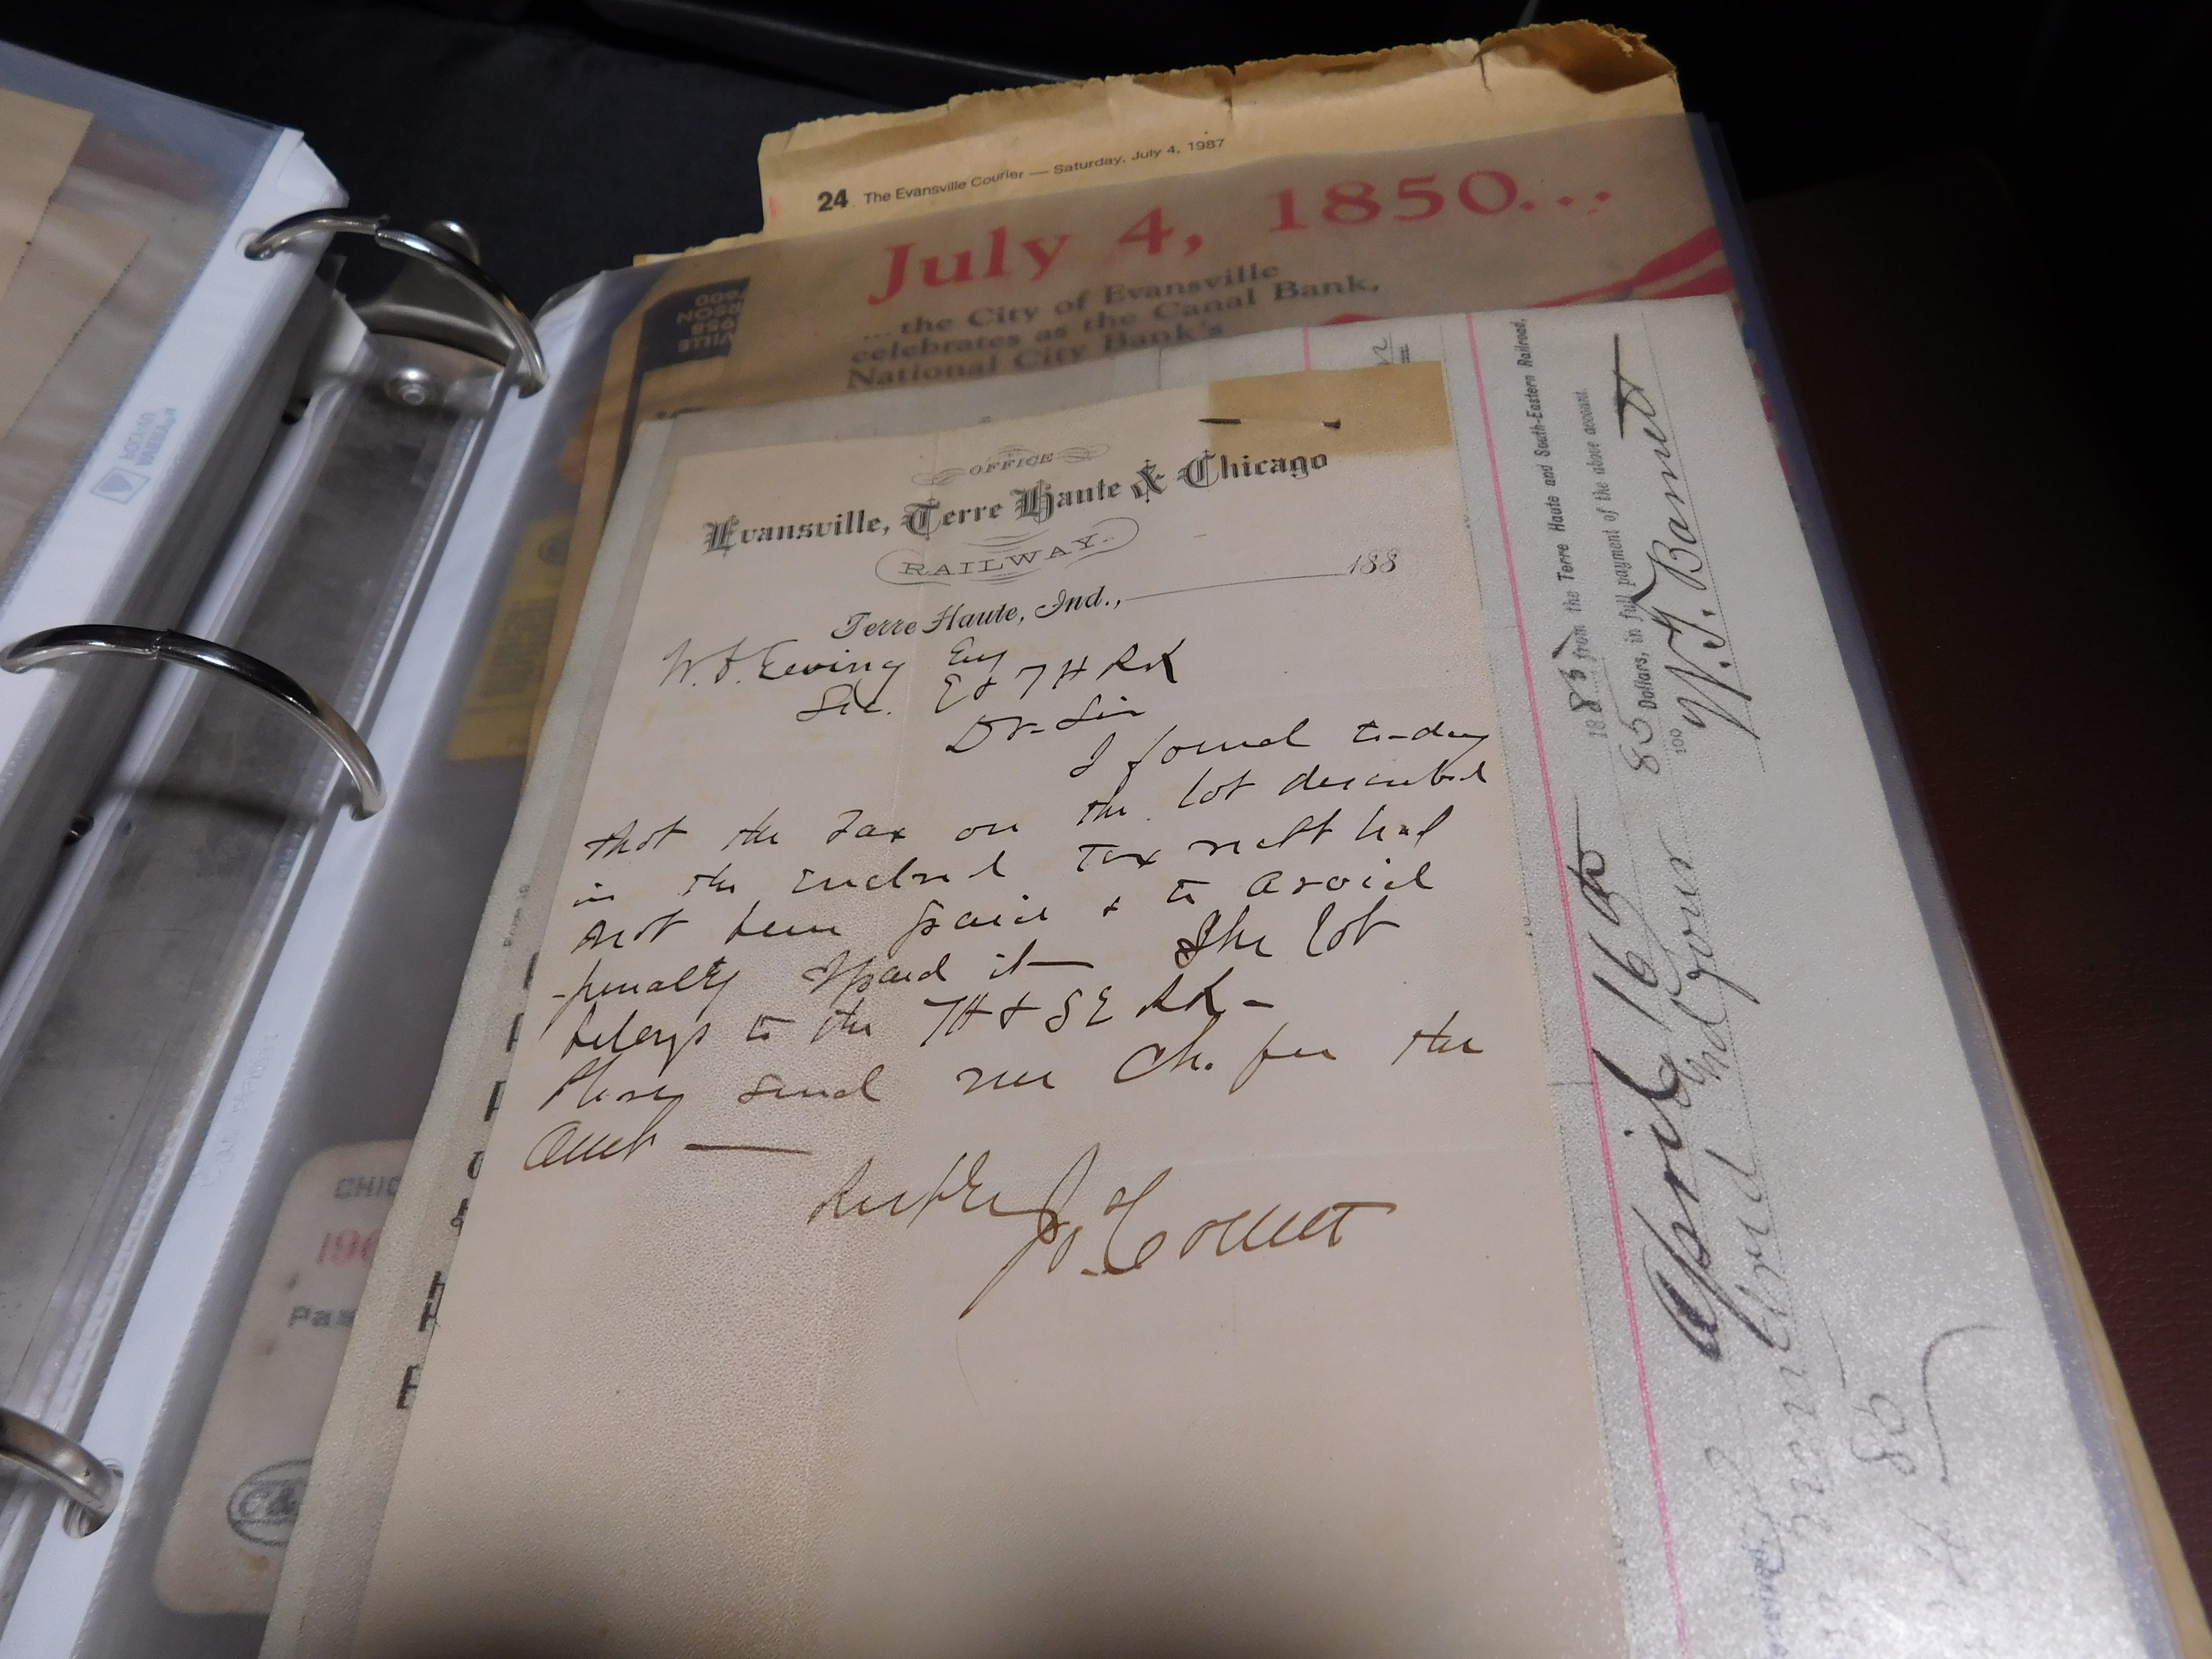 24 The Evansville Courier — Saturday, July 4, 1987
July 4, 1850...
...the City of Evansville
celebrates as the Canal Bank,
National City Bank's
OFFICE
Evansville, Terre Haute & Chicago
RAILWAY.
Terre Haute, Ind., 188
W. F. Ewing Esq
Sec. E & T H RR
Dr Sir
I found to-day
that the Tax on the lot described
in the enclosed Tax rect had
not been paid & to avoid
penalty I paid it — The lot
belongs to the TH & SE RR -
Please send me Ch. for the
Amt —
J. Collett
1883 from the Terre Haute and South-Eastern Railroad,
85 Dollars, in full payment of the above account.
100
April 16th
W. T. Barnett
and
Four
CHIC
196
Pas
C&